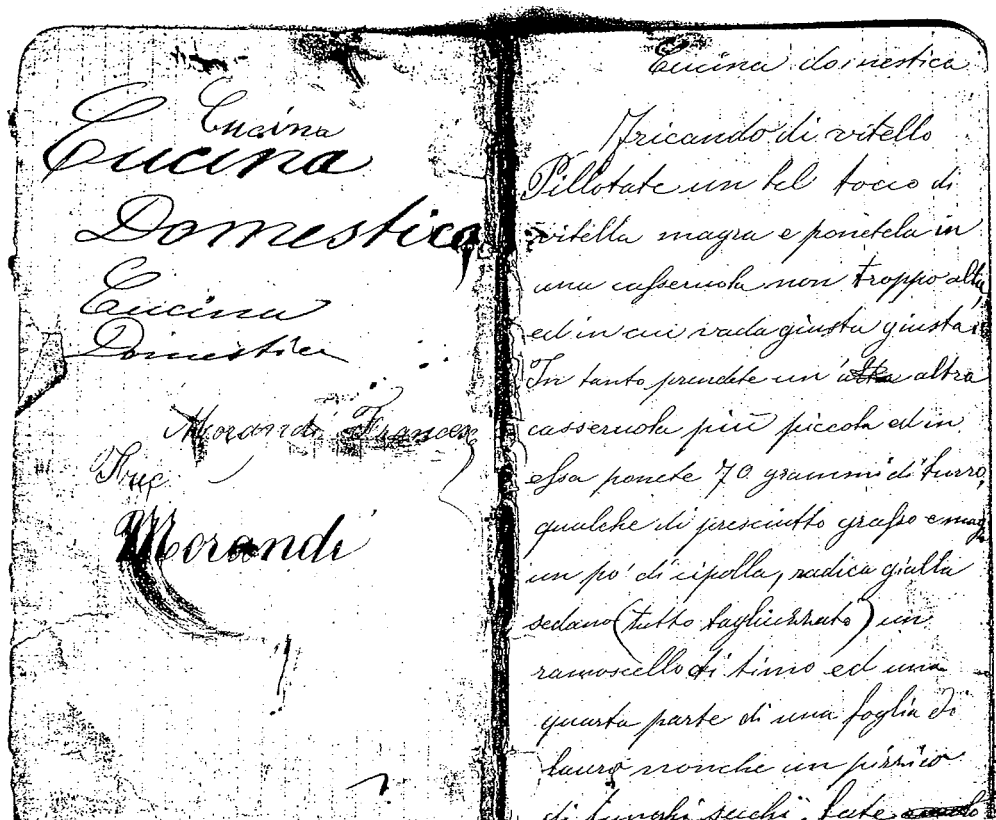 Cucina
Cucina
Domestica
Cucina
Domestica
Morandi
Morandi
Cucina domestica
Fricando di vitello
Pillotate un bel tocco di
vitella magra e ponetela in
una casseruola non troppo alta,
ed in cui vada giusta giusta.
In tanto prendete un altra
casseruola più piccola ed in
essa ponete 70 grammi di burro,
qualche di presciutto grasso e mag
un po' di cipolla, radica gialla
sedano (tutto tagliuzzato) un
ramoscello di timo ed una
quarta parte di una foglia di
lauro nonche un pizzico
di funghi secchi, fate